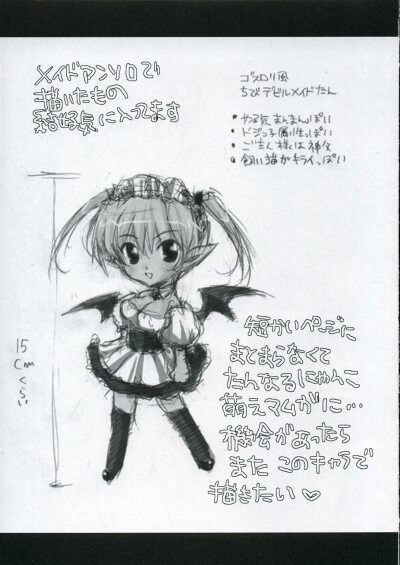 メイドアンソロで
描いたもの
結構気に入ってます
ゴスロリ風
ちびデビルメイドたん
・やる気まんまんっぽい
・ドジっ子属性っぽい
・ごしゅ人様は神父
・飼い猫がキライっぽい
15cmくらい
短かいページに
まとまらなくて
たんなるにゃんこ
萌えマムガに…
機会があったら
また このキャラで
描きたい♡